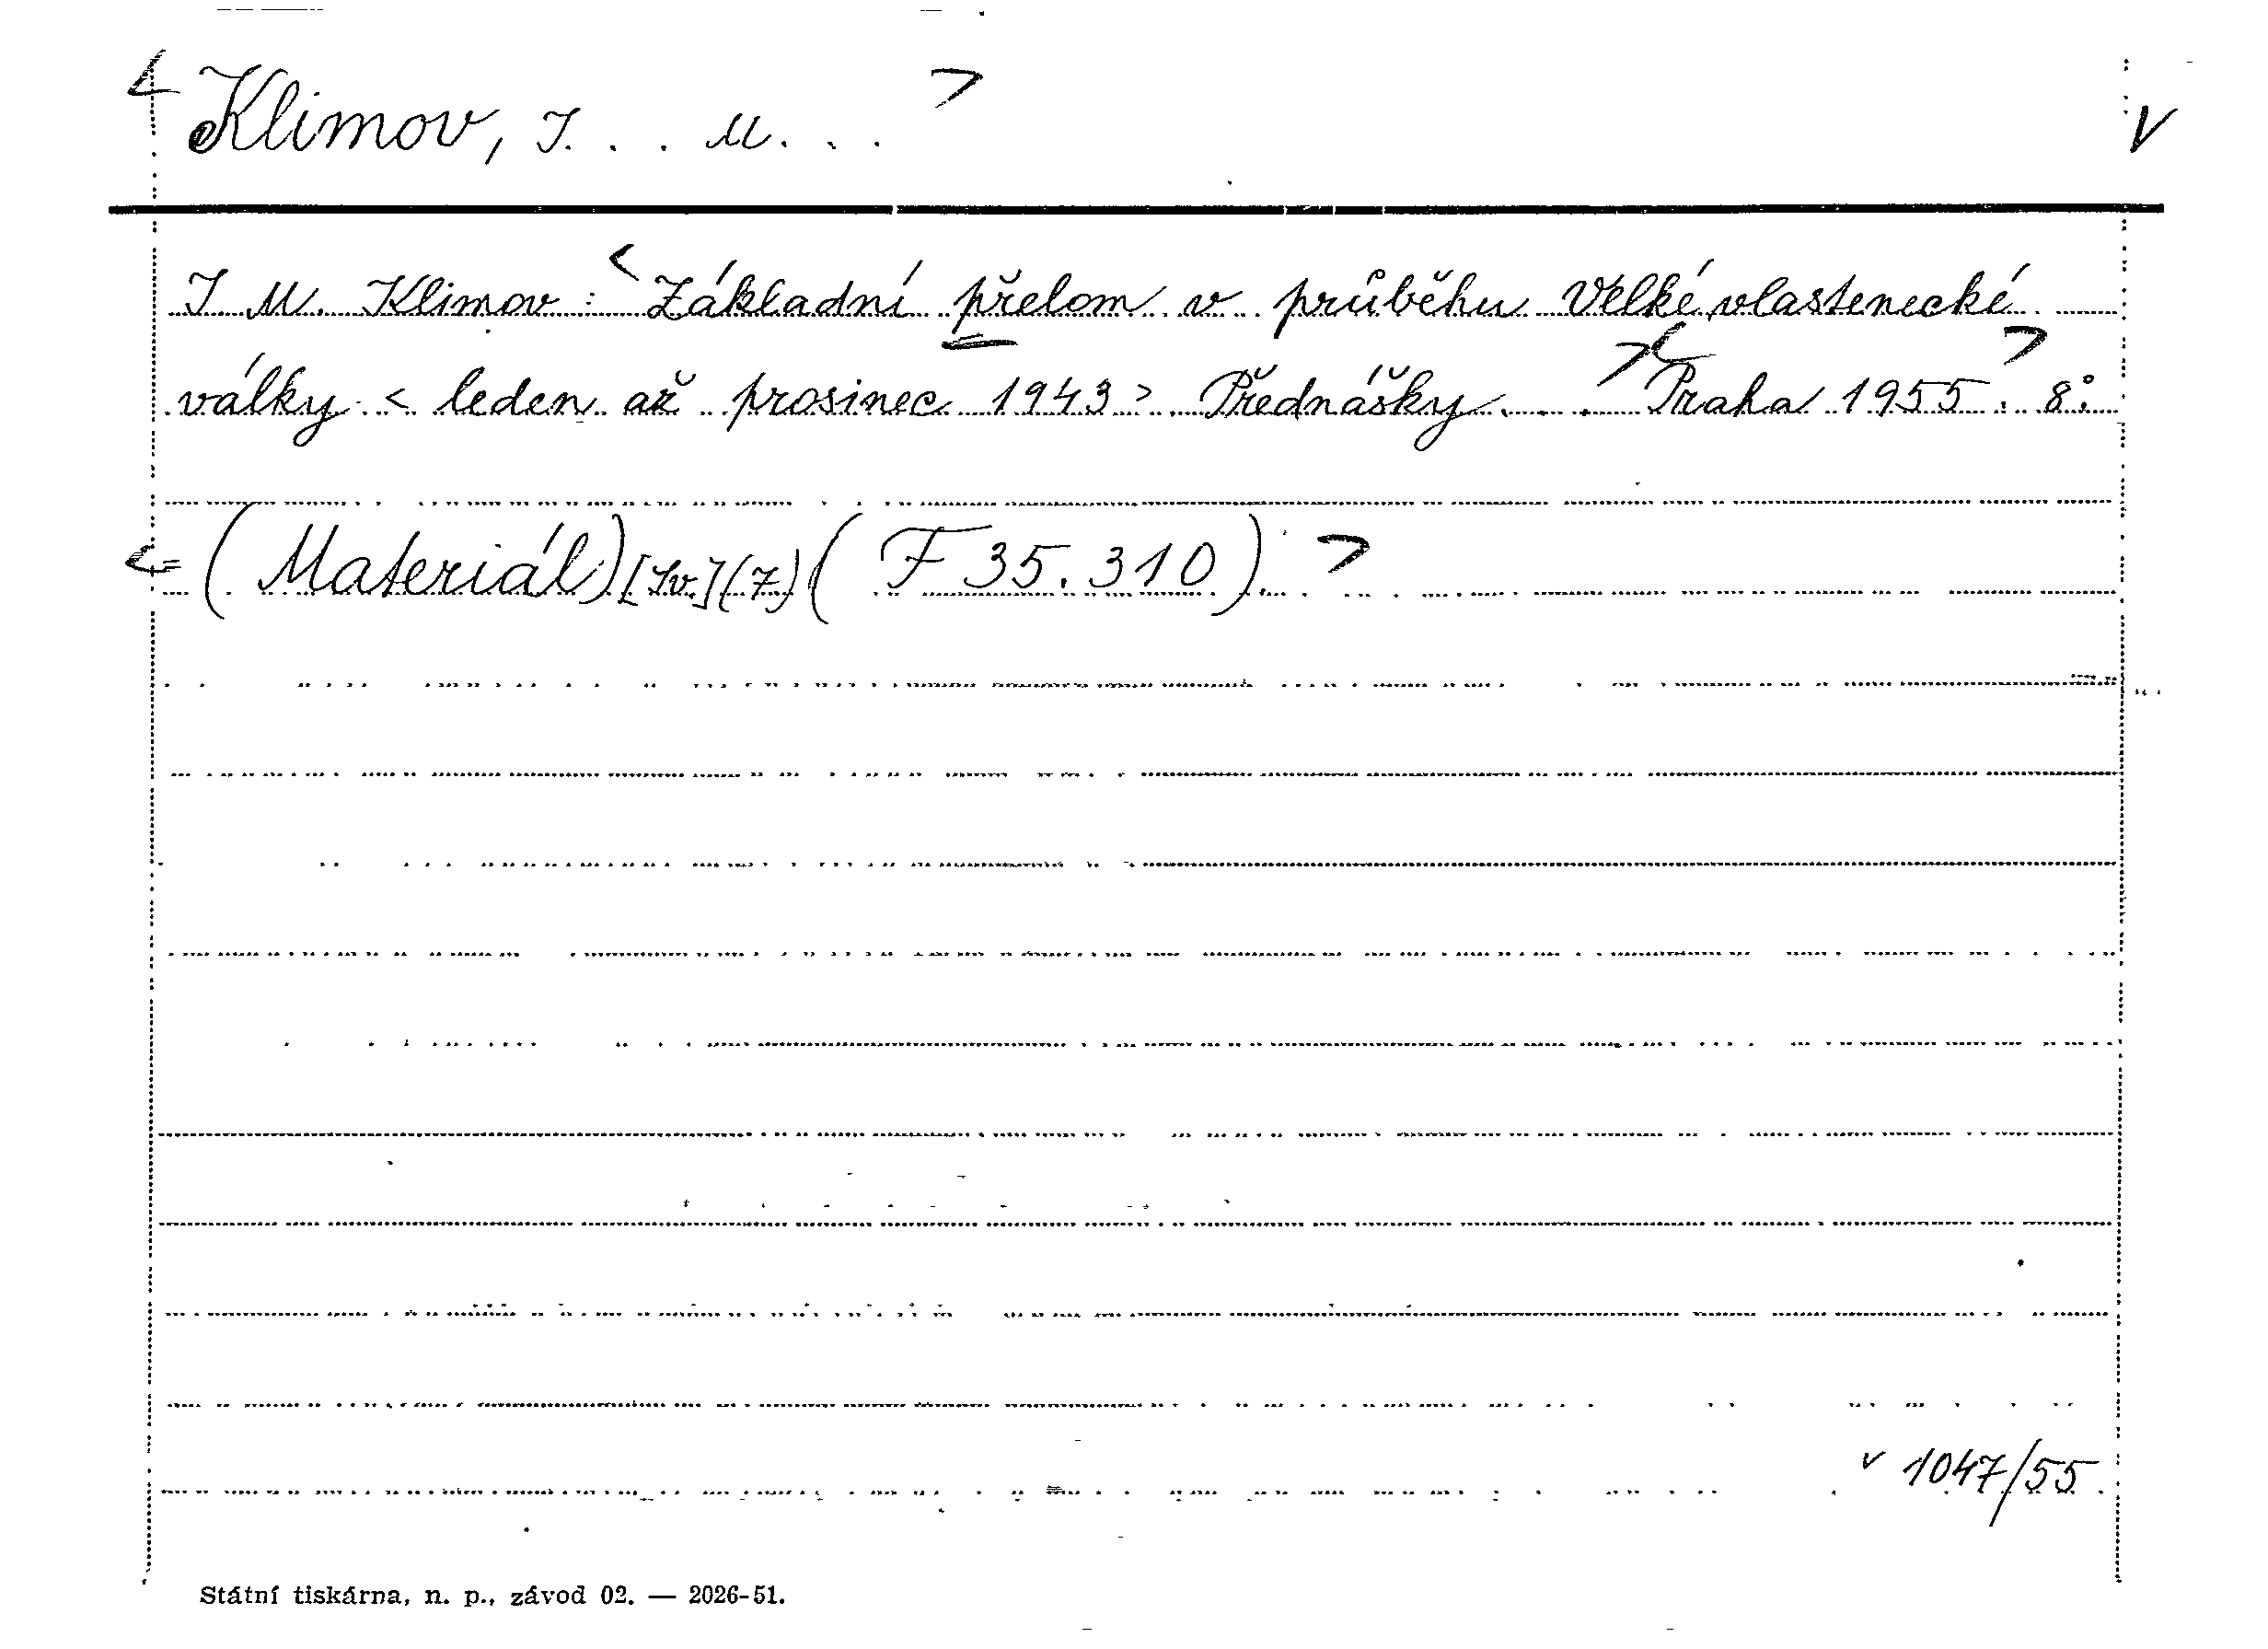 <Klimov, I. . . M. . . > V
I. M. Klimov : <Základní přelom v průběhu Velké vlastenecké
války < leden až prosinec 1943 > Přednášky . . . > <Praha 1955.> 8°.
<= (Materiál) [Sv.] (7) ( F 35.310 ). >
v 1047/55
Státní tiskárna, n. p., závod 02. — 2026-51.